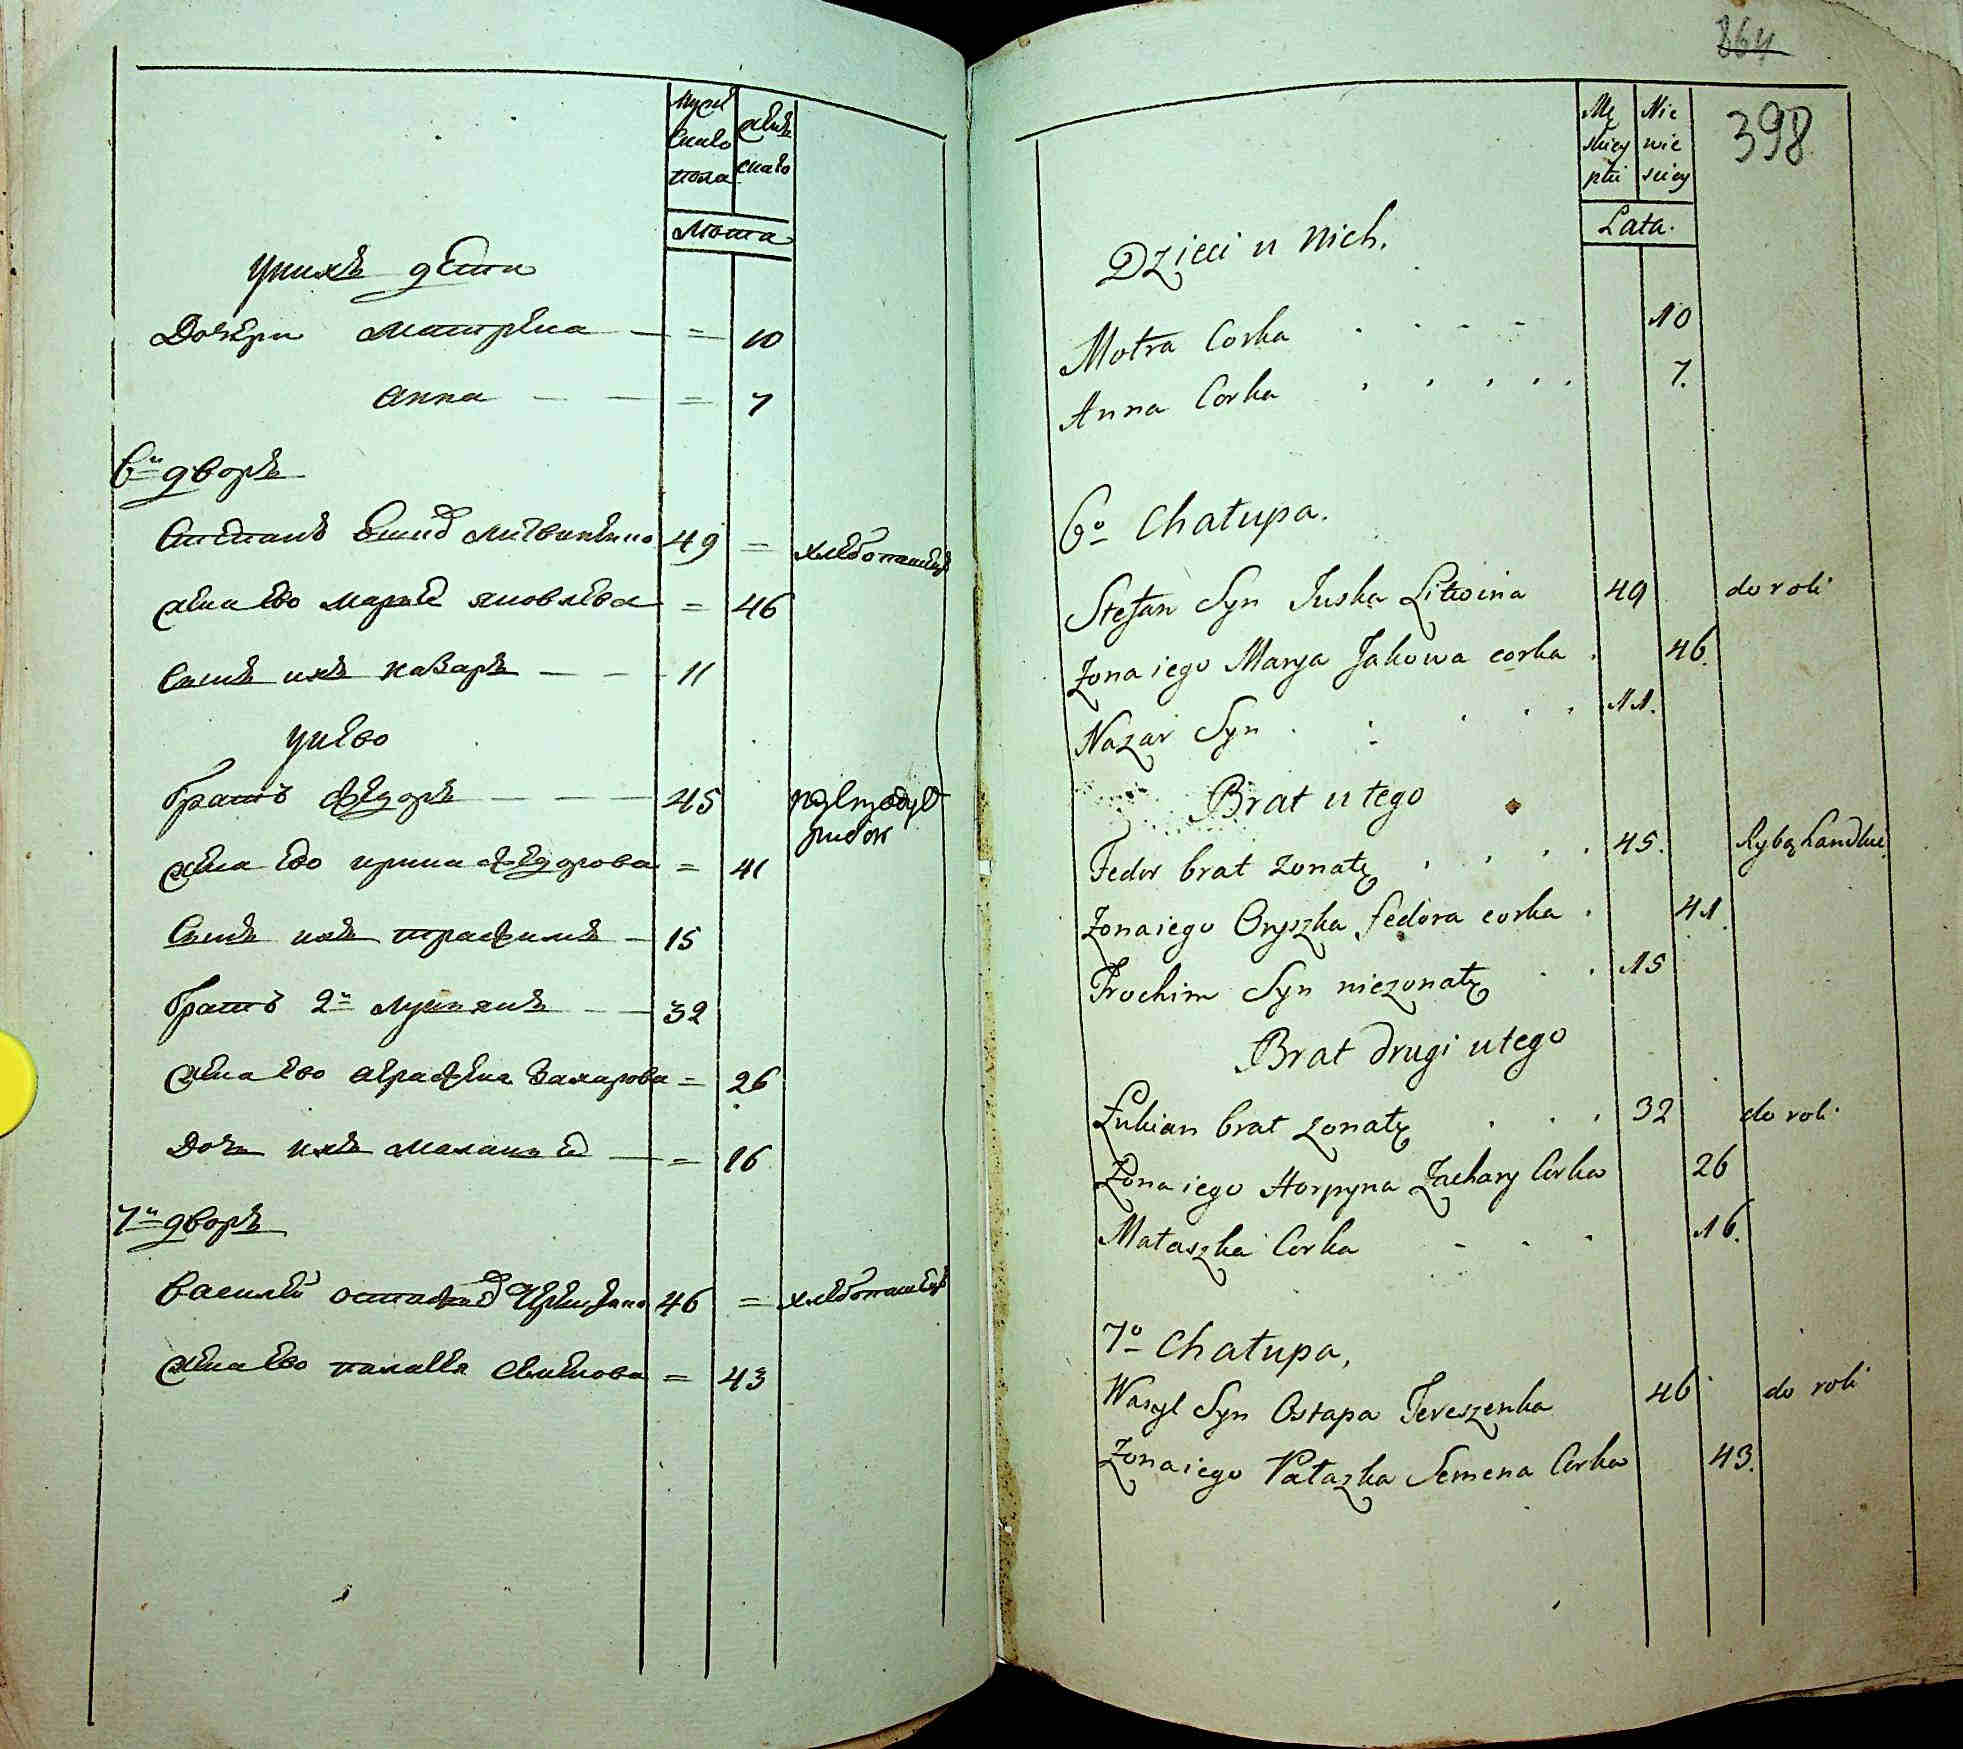 Муже
скаго
пола
жен
скаго
Лѣта
У нихъ дети
Дочери Матрена — = 10
Анна — — = 7
6й дворъ
Степанъ Литвиненко 49 = хлебопашецъ
жена ево Марья Яковлева = 46
Сынъ ихъ Назаръ — — 11
У нево
братъ Федоръ — — — 45
рибок
жена ево Ирина Федорова = 41
Сынъ ихъ Трафимъ — 15
братъ 2й Лукьянъ — — 32
жена ево Аграфена Захарова = 26
Дочь ихъ Маланья — = 16
7й дворъ
Василей 46 = хлебопашецъ
жена ево Палагея Семенова = 43
264
398
Mę
skiey
płci
Nie
wie
sciey
Lata.
Dzieci u Nich.
Motra Corka 10
Anna Corka 7.
6o Chałupa.
Stefan Syn Juska Litwina 49 do roli
Zona iego Marya Jakowa corka 46.
Nazar Syn 11.
Brat u tego
Fedor brat zonaty 45. Rybą handlue.
Zona iego Oryszka fedora corka 41.
Trochim Syn niezonaty 15
Brat drugi u tego
Łukian brat zonaty 32 do roli
Zona iego Horpyna Zachary Corka 26
Małaszka Corka 16.
7o Chałupa,
Wasyl Syn Ostapa Tereszenka 46 do roli
Zona iego Pałazka Semena Corka 43.